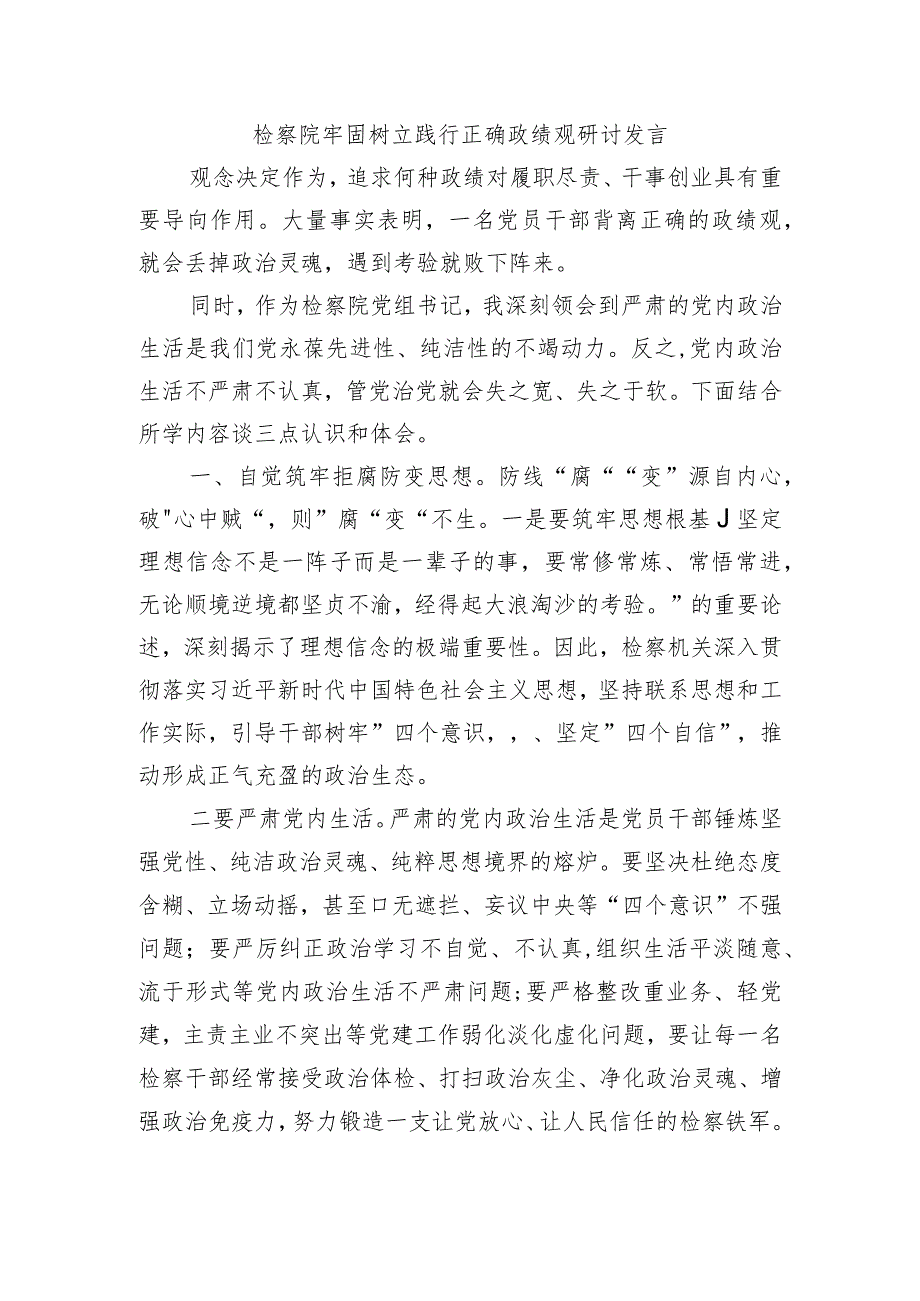 检察院牢固树立践行正确政绩观研讨发言
观念决定作为，追求何种政绩对履职尽责、干事创业具有重
要导向作用。大量事实表明，一名党员干部背离正确的政绩观，
就会丢掉政治灵魂，遇到考验就败下阵来。
同时，作为检察院党组书记，我深刻领会到严肃的党内政治
生活是我们党永葆先进性、纯洁性的不竭动力。反之,党内政治
生活不严肃不认真，管党治党就会失之宽、失之于软。下面结合
所学内容谈三点认识和体会。
一、自觉筑牢拒腐防变思想。防线“腐““变”源自内心，
破"心中贼“，则”腐“变“不生。一是要筑牢思想根基J坚定
理想信念不是一阵子而是一辈子的事，要常修常炼、常悟常进，
无论顺境逆境都坚贞不渝，经得起大浪淘沙的考验。”的重要论
述，深刻揭示了理想信念的极端重要性。因此，检察机关深入贯
彻落实习近平新时代中国特色社会主义思想，坚持联系思想和工
作实际，引导干部树牢”四个意识，，、坚定”四个自信”，推
动形成正气充盈的政治生态。
二要严肃党内生活。严肃的党内政治生活是党员干部锤炼坚
强党性、纯洁政治灵魂、纯粹思想境界的熔炉。要坚决杜绝态度
含糊、立场动摇，甚至口无遮拦、妄议中央等“四个意识”不强
问题；要严厉纠正政治学习不自觉、不认真,组织生活平淡随意、
流于形式等党内政治生活不严肃问题;要严格整改重业务、轻党
建，主责主业不突出等党建工作弱化淡化虚化问题，要让每一名
检察干部经常接受政治体检、打扫政治灰尘、净化政治灵魂、增
强政治免疫力，努力锻造一支让党放心、让人民信任的检察铁军。